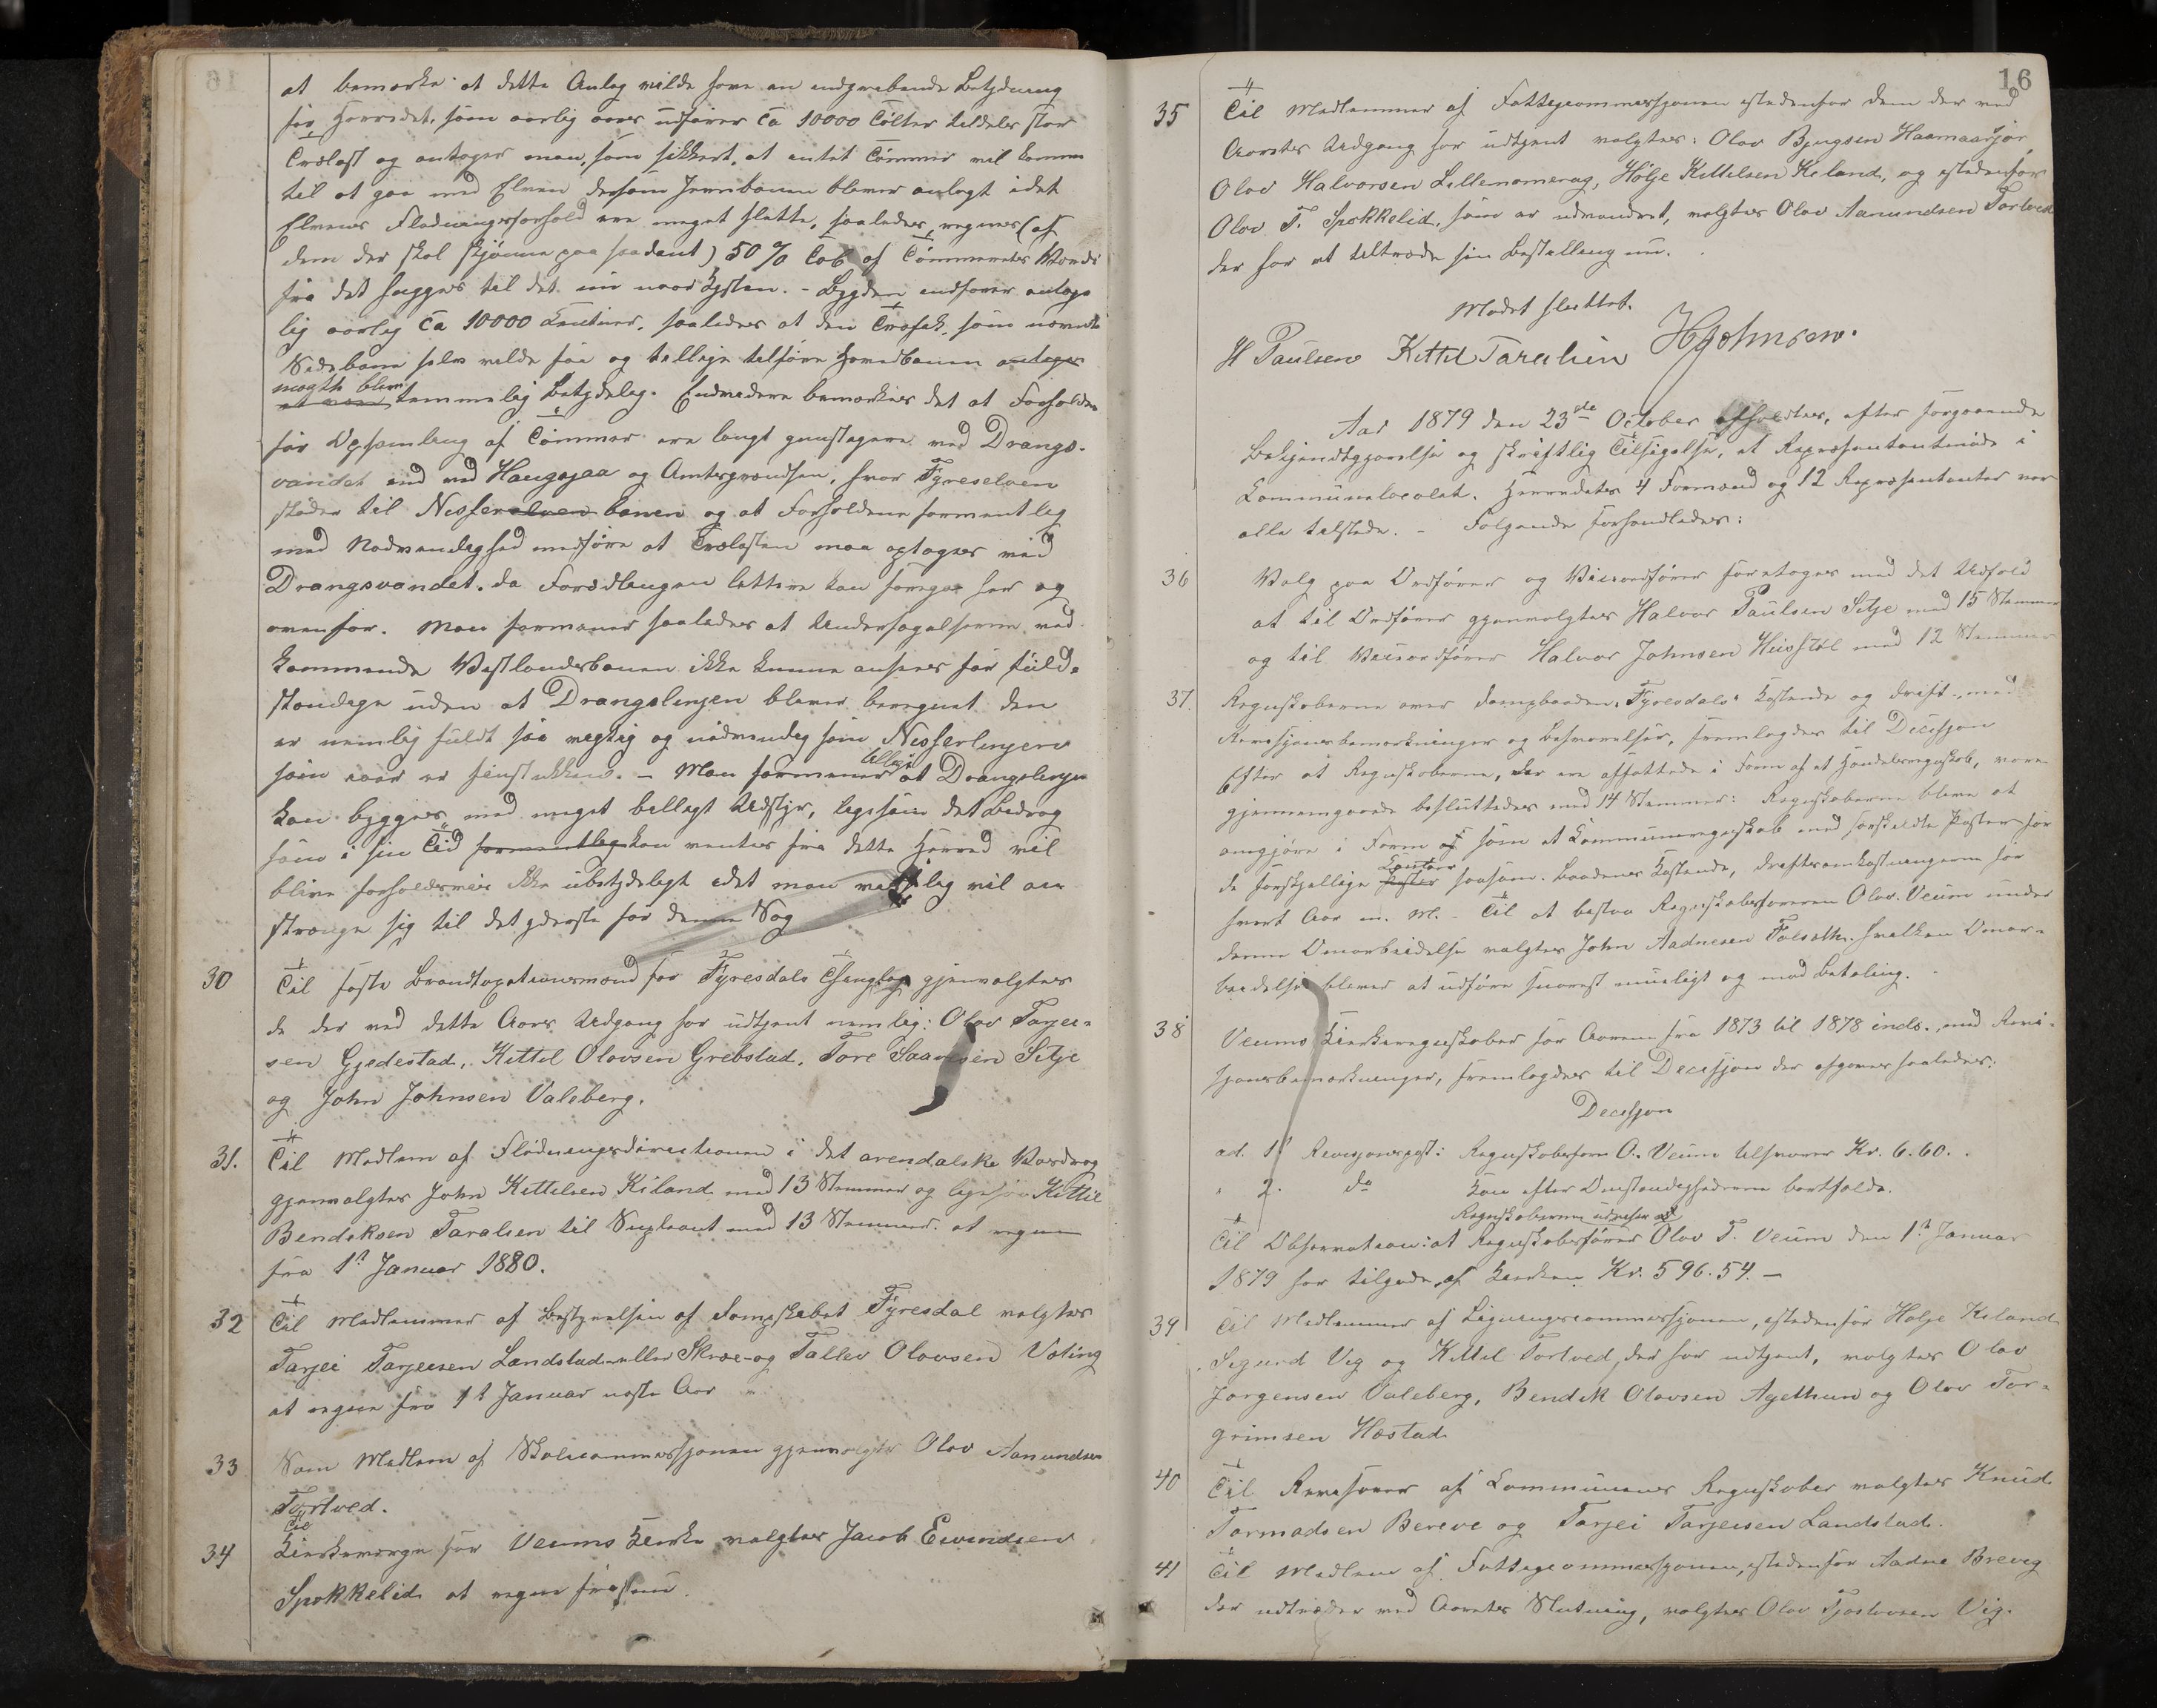 at bemærke at dette Anlæg vilde have en indgribende Betydning
for Herredet, som aarlig aars udfører ca 10000 Tolter tildels stor
Trælast og antager man, som sikkert, at intet Tømmer vil komme
til at gaa med Elven dersom Jernbanen bliver anlagt idet
Elvens Flødningsforhold ere meget slette, saaledes regnes (af
dem der skal skjønne paa saadant) 50 % Tab af Tømmerets Værdi
fra det hugges til det nu naar Kysten. – Bygden indfører antage
lig aarlig ca 10000 Centner, saaledes at den Trafik, som nævnte
Sidebane selv vilde faa og tillige tilføre Hovedbanen antages
maatte blive
at være temmelig Betydelig. Endvidere bemærkes det at Forholdene
for Opsamling af Tømmer ere langt gunstigere ved Drangs-
vandet end ved Haugsjaa og Amtsgrændsen, hvor Fyreselven
støder til Nisserelven banen og at Forholdene formentlig
med Nødvendighed medføre at Trælasten maa optages ved
Drangsvandet, da Forædlingen lettere kan foregaa her og
ovenfor. Man formener saaledes at Undersøgelserne ved-
kommende Vestlandsbanen ikke kunne ansees for fuld-
stændige uden at Drangslinjen bliver beregnet den
er nemlig fuldt saa vigtig og nødvendig som Nisserlinjen
som er . – Man formener tillige at Drangslinjen
kan bygges med meget billigt Udstyr, ligesom det Bidrag
som i sin Tid formentlig kan ventes fra dette Herred vil
blive forholdsvis ikke ubetydeligt idet man vistnok lig vil an
strænge sig til det yderste for denne Sag
30 Til faste Brandtaxationsmænd for Fyresdals Thinglag gjenvalgtes
de der ved dette Aars Udgang har udtjent nemlig: Olav Tarjei-
sen Gjedestad, Kittil Olavsen Grebstad, Tore Saavesen Sitje
og John Johnsen Valeberg.
31. Til Medlem af Flødningsdirectionen i det arendalske Vasdrag
gjenvalgtes John Kittelsen Kiland med 13 Stemmer og ligesaa Kittil
Bendiksen Taralsen til Supleant med 13 Stemmer at regne
fra 1ste Januar 1880.
32 Til Medlemmer af Bestyrelsen af Dampskibet Fyresdal valgtes
Tarjei Tarjeisen Landstad eller Skræ og Tallev Olavsen Væting
at regne fra 1st Januar næste Aar
33 Som Medlem af Skolecommissjonen gjenvalgtes Olav Aanundsen
Tortved.
Til
34 Kirkeværge for Veums Kirke valgtes Jacob Eivindsen
Spokkelid at regne fra nu.
16
35 Til Medlemmer af Fattigcommissjonen istedenfor dem der ved
Aarets Udgang har udtjent valgtes: Olav Bjugsen Haamaarsjor,
Olav Halvorsen Lillenomerag, Hølje Kittelsen Kiland, og istedenfor
Olav T. Spokkelid, som er udvandret, valgtes Olav Aanundsen Tortved
der har at tiltræde sin Bestilling nu.
Mødet sluttet.
H Paulsen Kittil Taralsen HJohnsen.
Aar 1879 den 23de October afholdtes, efter foregaaende
Bekjendtgjørelse og skriftlig Tilsigelse, et Repræsentantmøde i
Communelocalet. Herredets 4 Formænd og 12 Repræsentanter var
alle tilstede. – Følgende forhandledes:
36 Valg paa Ordfører og Viceordfører foretoges med det Udfald
at til Ordfører gjenvalgtes Halvor Paulsen Sitje med 15 Stemmer
og til Viceordfører Halvor Johnsen Huisstøl med 12 Stemmer
37. Regnskaberne over Dampbaaden "Fyresdals" Kostende og Drift, med
Revisjonsbemærkninger og Besvarelser, fremlagdes til Decisjon
Efter at Regnskaberne, der ere affattede i Form af et Handelsregnskab, vare
gjennemgaaede besluttedes med 14 Stemmer: Regnskaberne blive at
omgjøre i Form af som et Communeregnskab med særskildte Poster for
de forskjellige Poster Contoer saasom. Baadens Kostende, Driftsomkostningerne for
hvert Aar m. M. – Til at bistaa Regnskabsføreren Olav Veum under
denne Omarbeidelse valgtes John Aadnesen Folsæth, hvilken Omar-
beidelse bliver at udføre snarest mueligt og mod Betaling. –
38 Veums Kirkeregnskaber for Aarene fra 1873 til 1878 incls., med Revi-
sjonsbemærkninger, fremlagdes til Decisjon der afgaves saaledes:
Decisjon
ad. 1 Revisjonspost: Regnskabsfører O. Veum tilsvarer Kr. 6.60.
" 2. do Kan efter Omstændighederne bortfalde.
Regnskaberne udviser at
Til Observation: at Regnskabsfører Olav T. Veum den 1st Januar
1879 har tilgode af Kirken Kr. 596.54. –
39 Til Medlemmer af Ligningscommissjonen, istedenfor Hølje Kiland
Sigurd Vig og Kittil Tortved, der har udtjent, valgtes Olav
Jørgensen Valeberg, Bendik Olavsen Ayelhun og Olav Tor-
grimsen Hæstad.
40 Til Revisorer af Communens Regnskaber valgtes Knud
Tarmodsen Bereve og Tarjei Tarjeisen Landstad.
41 Til Medlem af Fattigcommissjonen, istedenfor Aadne Breveg
der udtræder ved Aarets Slutning, valgtes Olav Tjostovsen Vig.